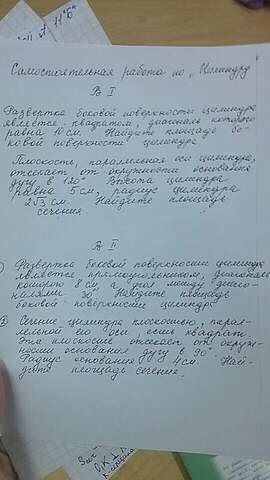 Самостоятельная работа по „Цилиндру
В I
Развертка боковой поверхности цилиндра
является квадратом, диагональ которого
равна 10 см. Найдите площадь бо-
ковой поверхности цилиндра
Плоскость, параллельная оси цилиндра,
отсекает от окружности основания
дугу в 120° Высота цилиндра
равна 5 см, радиус цилиндра
2√3 см. Найдите площадь
сечения.
В II
Развертка боковой поверхности цилиндра
является прямоугольником, диагональ
которого 8 см, а угол между диаго-
налями 30° Найдите площадь
боковой поверхности цилиндра
2 Сечение цилиндра плоскостью, парал-
лельной его оси, есть квадрат.
Эта плоскость отсекает от окруж-
ности основания дугу в 90°.
Радиус основания 4 см. Най-
дите площадь сечения.